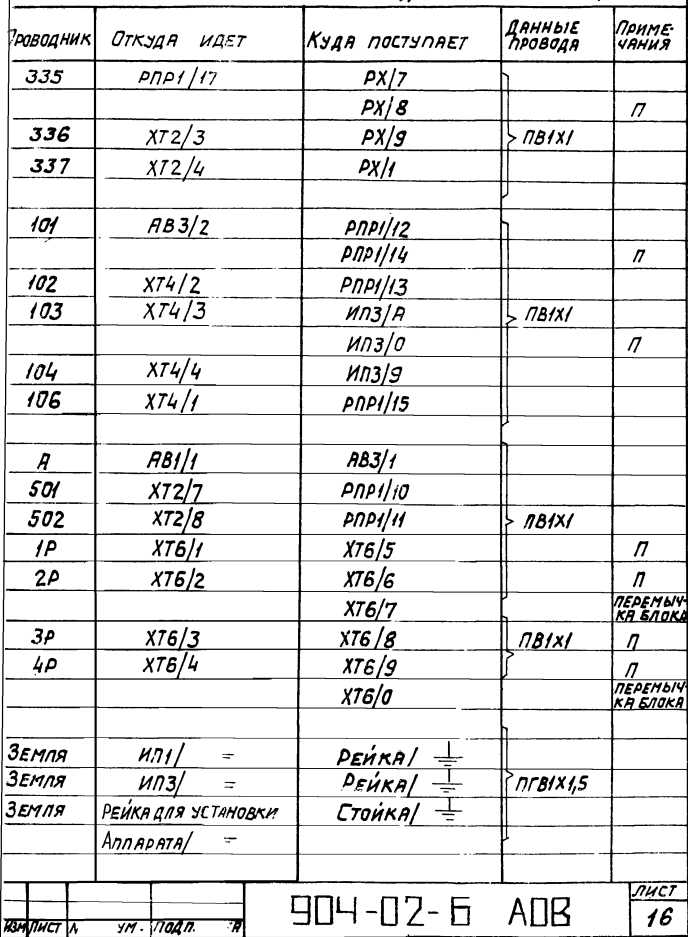 Проводник Откуда идет Куда поступает Данные провода Примечания
335 РПР1/17 РХ/7
РХ/8 П
336 ХТ2/3 РХ/9 ПВ1Х1
337 ХТ2/4 РХ/1
101 АВ3/2 РПР1/12
РПР1/14 П
102 ХТ4/2 РПР1/13
103 ХТ4/3 ИП3/А ПВ1Х1
ИП3/0 П
104 ХТ4/4 ИП3/9
106 ХТ4/1 РПР1/15
А АВ1/1 АВ3/1
501 ХТ2/7 РПР1/10
502 ХТ2/8 РПР1/11 ПВ1Х1
1Р ХТ6/1 ХТ6/5 П
2Р ХТ6/2 ХТ6/6 П
ХТ6/7 Перемычка блока
3Р ХТ6/3 ХТ6/8 ПВ1Х1 П
4Р ХТ6/4 ХТ6/9 П
ХТ6/0 Перемычка блока
Земля ИП1/ Рейка/
Земля ИП3/ Рейка/ ПГВ1Х1,5
Земля Рейка для установки Стойка/
Аппарата/
904-02-Б АОВ Лист
Изм Лист № ум. Подп. 16